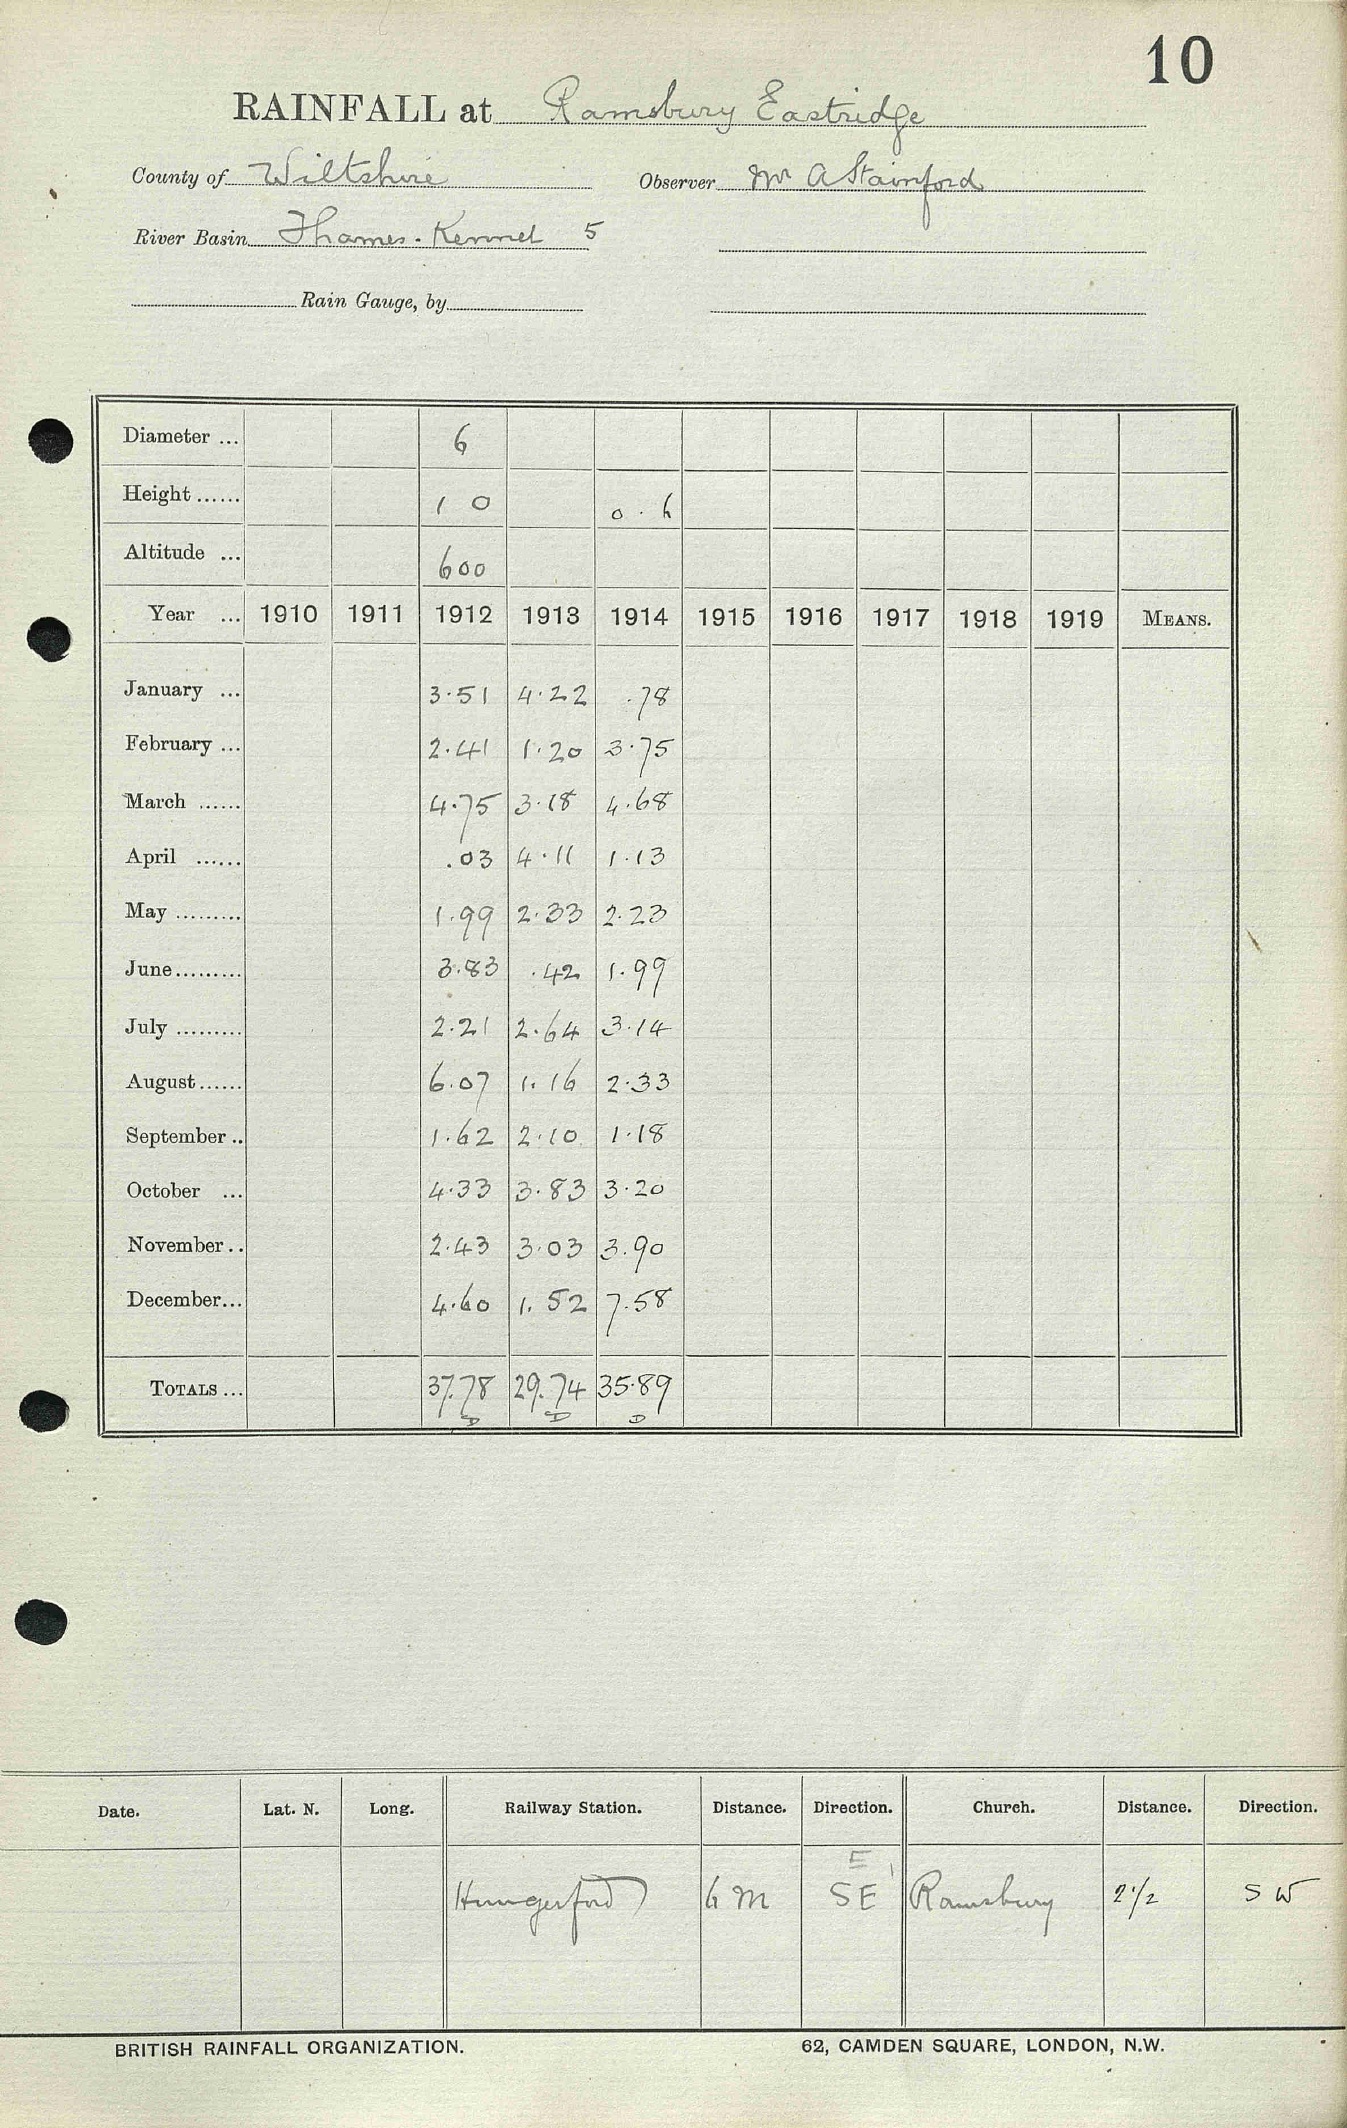 10
RAINFALL at Ramsbury Eastridge
County of Wiltshire Observer Mr A Stainford
River Basin Thames. Kennet 5
Rain Gauge, by
Diameter ... 6
Height ...... 1 0 0.6
Altitude ... 600
Year ... 1910 1911 1912 1913 1914 1915 1916 1917 1918 1919 MEANS.
January ... 3.51 4.22 .78
February ... 2.41 1.20 3.75
March ...... 4.75 3.18 4.68
April ...... .03 4.11 1.13
May ......... 1.99 2.33 2.23
June ......... 3.83 .42 1.99
July ......... 2.21 2.64 3.14
August ...... 6.07 1.16 2.33
September .. 1.62 2.10 1.18
October ... 4.33 3.83 3.20
November .. 2.43 3.03 3.90
December ... 4.60 1.52 7.58
TOTALS ... 37.78 29.74 35.89
D D D
Date. Lat. N. Long. Railway Station. Distance. Direction. Church. Distance. Direction.
E
Hungerford 6 M SE Ramsbury 2 1/2 SW
BRITISH RAINFALL ORGANIZATION. 62, CAMDEN SQUARE, LONDON, N.W.